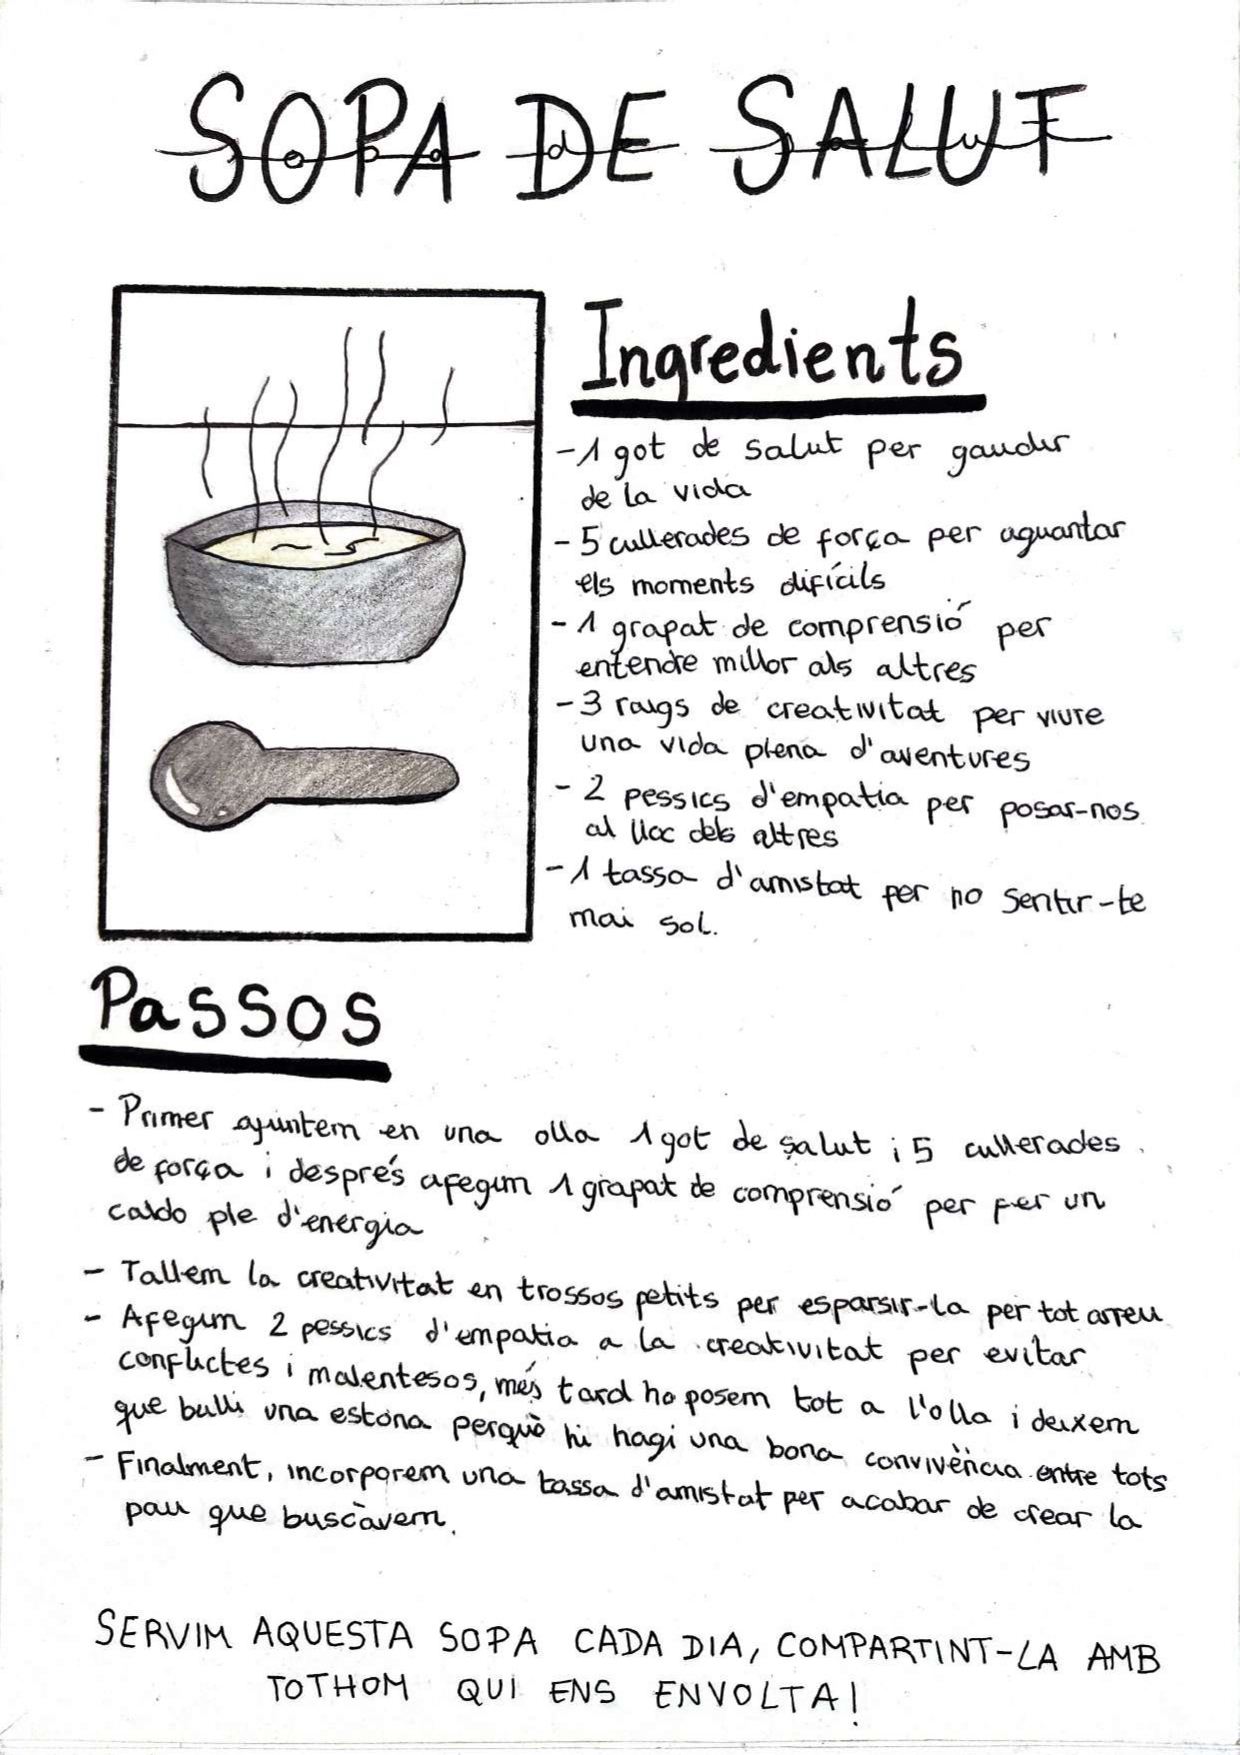 SOPA DE SALUT
Ingredients
- 1 got de salut per gaudir
de la vida
- 5 cullerades de força per aguantar
els moments difícils
- 1 grapat de comprensió per
entendre millor als altres
- 3 raigs de creativitat per viure
una vida plena d'aventures
- 2 pessics d'empatia per posar-nos
al lloc dels altres
- 1 tassa d'amistat per no sentir-te
mai sol.
Passos
- Primer ajuntem en una olla 1 got de salut i 5 cullerades
de força i després afegim 1 grapat de comprensió per fer un
caldo ple d'energia
- Tallem la creativitat en trossos petits per esparsir-la per tot arreu
- Afegim 2 pessics d'empatia a la creativitat per evitar
conflictes i malentesos, més tard ho posem tot a l'olla i deixem
que bulli una estona perquè hi hagi una bona convivència entre tots
- Finalment, incorporem una tassa d'amistat per acabar de crear la
pau que buscàvem.
SERVIM AQUESTA SOPA CADA DIA, COMPARTINT-LA AMB
TOTHOM QUI ENS ENVOLTA!